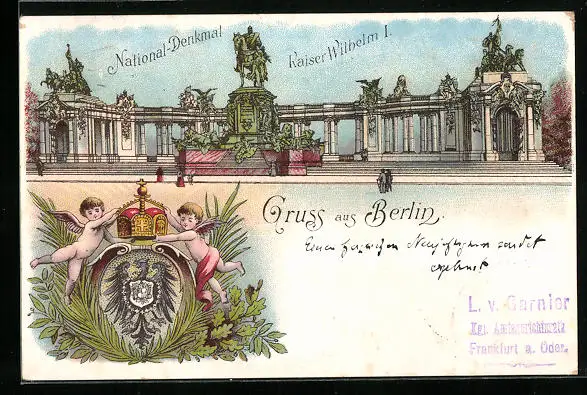 National-Denkmal Kaiser Wilhelm I.
Gruss aus Berlin.
Einen herzlichen Neujahrsgruss sendet
L. v. Garnier
Kgl. Amtsgerichtsrat
Frankfurt a. Oder.